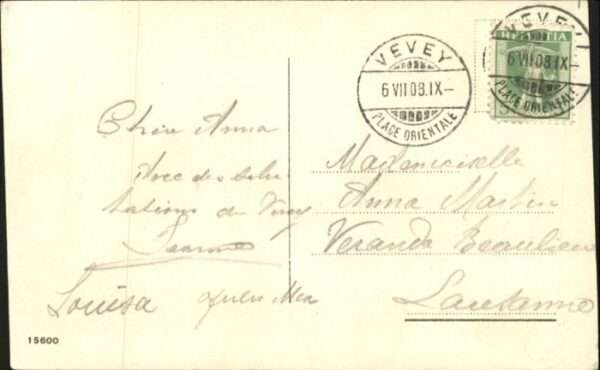 VEVEY
6 VII 08.IX-
PLACE ORIENTALE
VEVEY
HELVETIA
6 VII 08.IX-
PLACE ORIENTALE
Chère Anna
Avec des salu
tations de Vevey
Jeanne
Louisa
Mademoiselle
Anna Martin
Veranda Beaulieu
Lausanne
15600